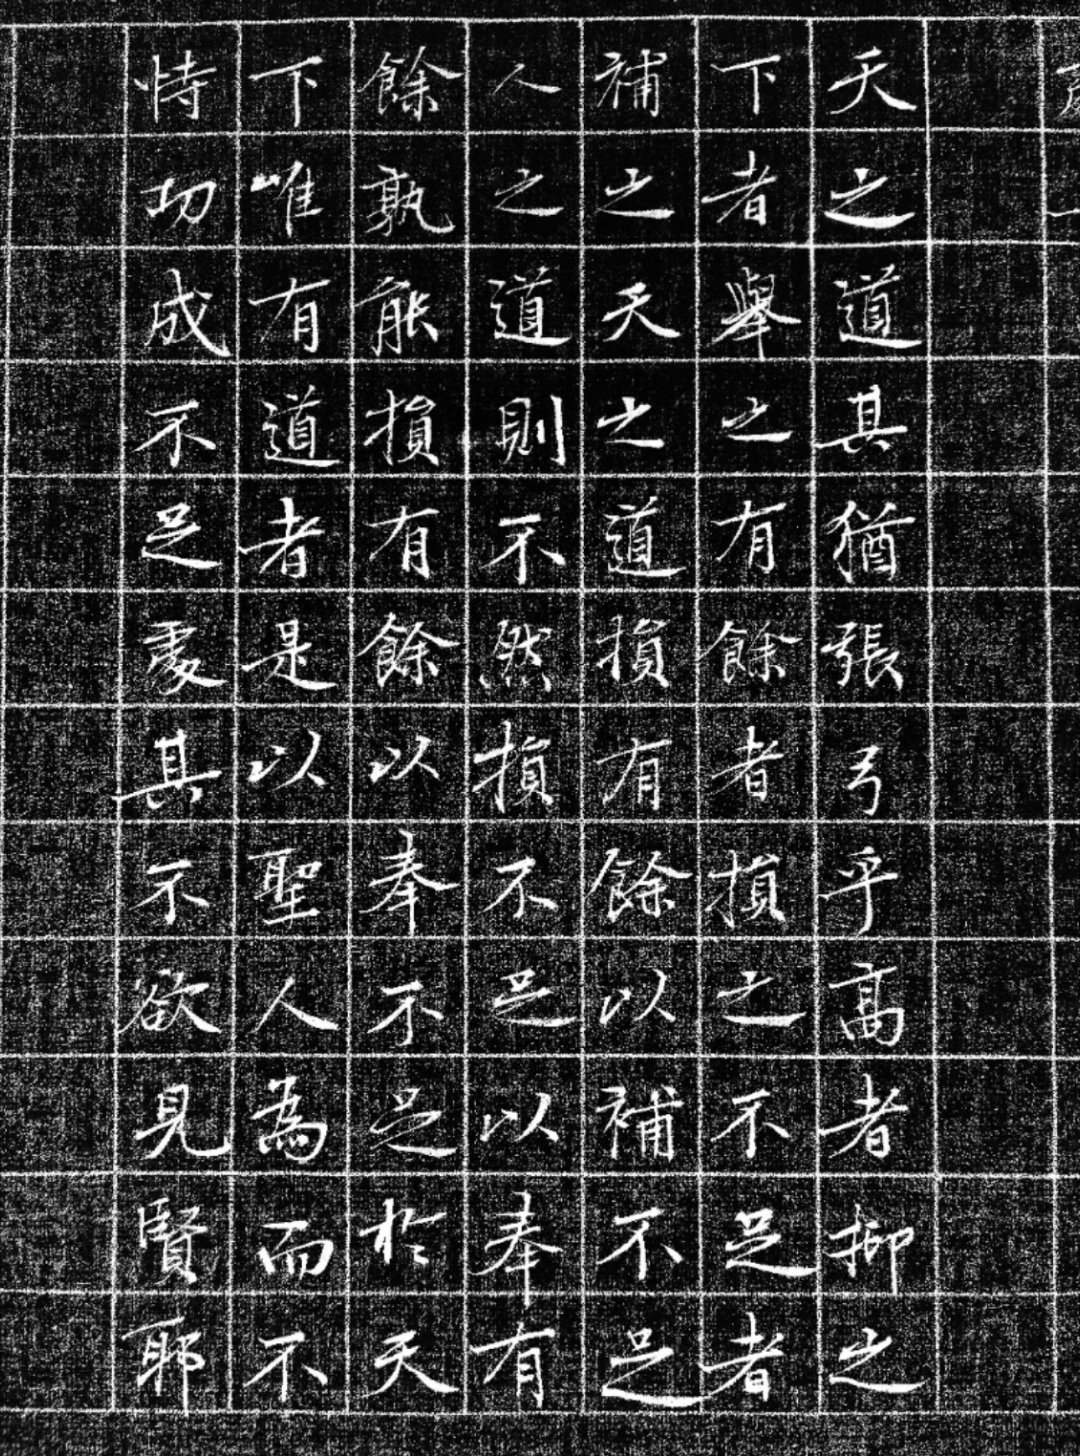 天之道其猶張弓乎高者抑之
下者舉之有餘者損之不足者
補之天之道損有餘以補不足
人之道則不然損不足以奉有
餘孰能損有餘以奉不足於天
下唯有道者是以聖人為而不
恃功成不處其不欲見賢耶